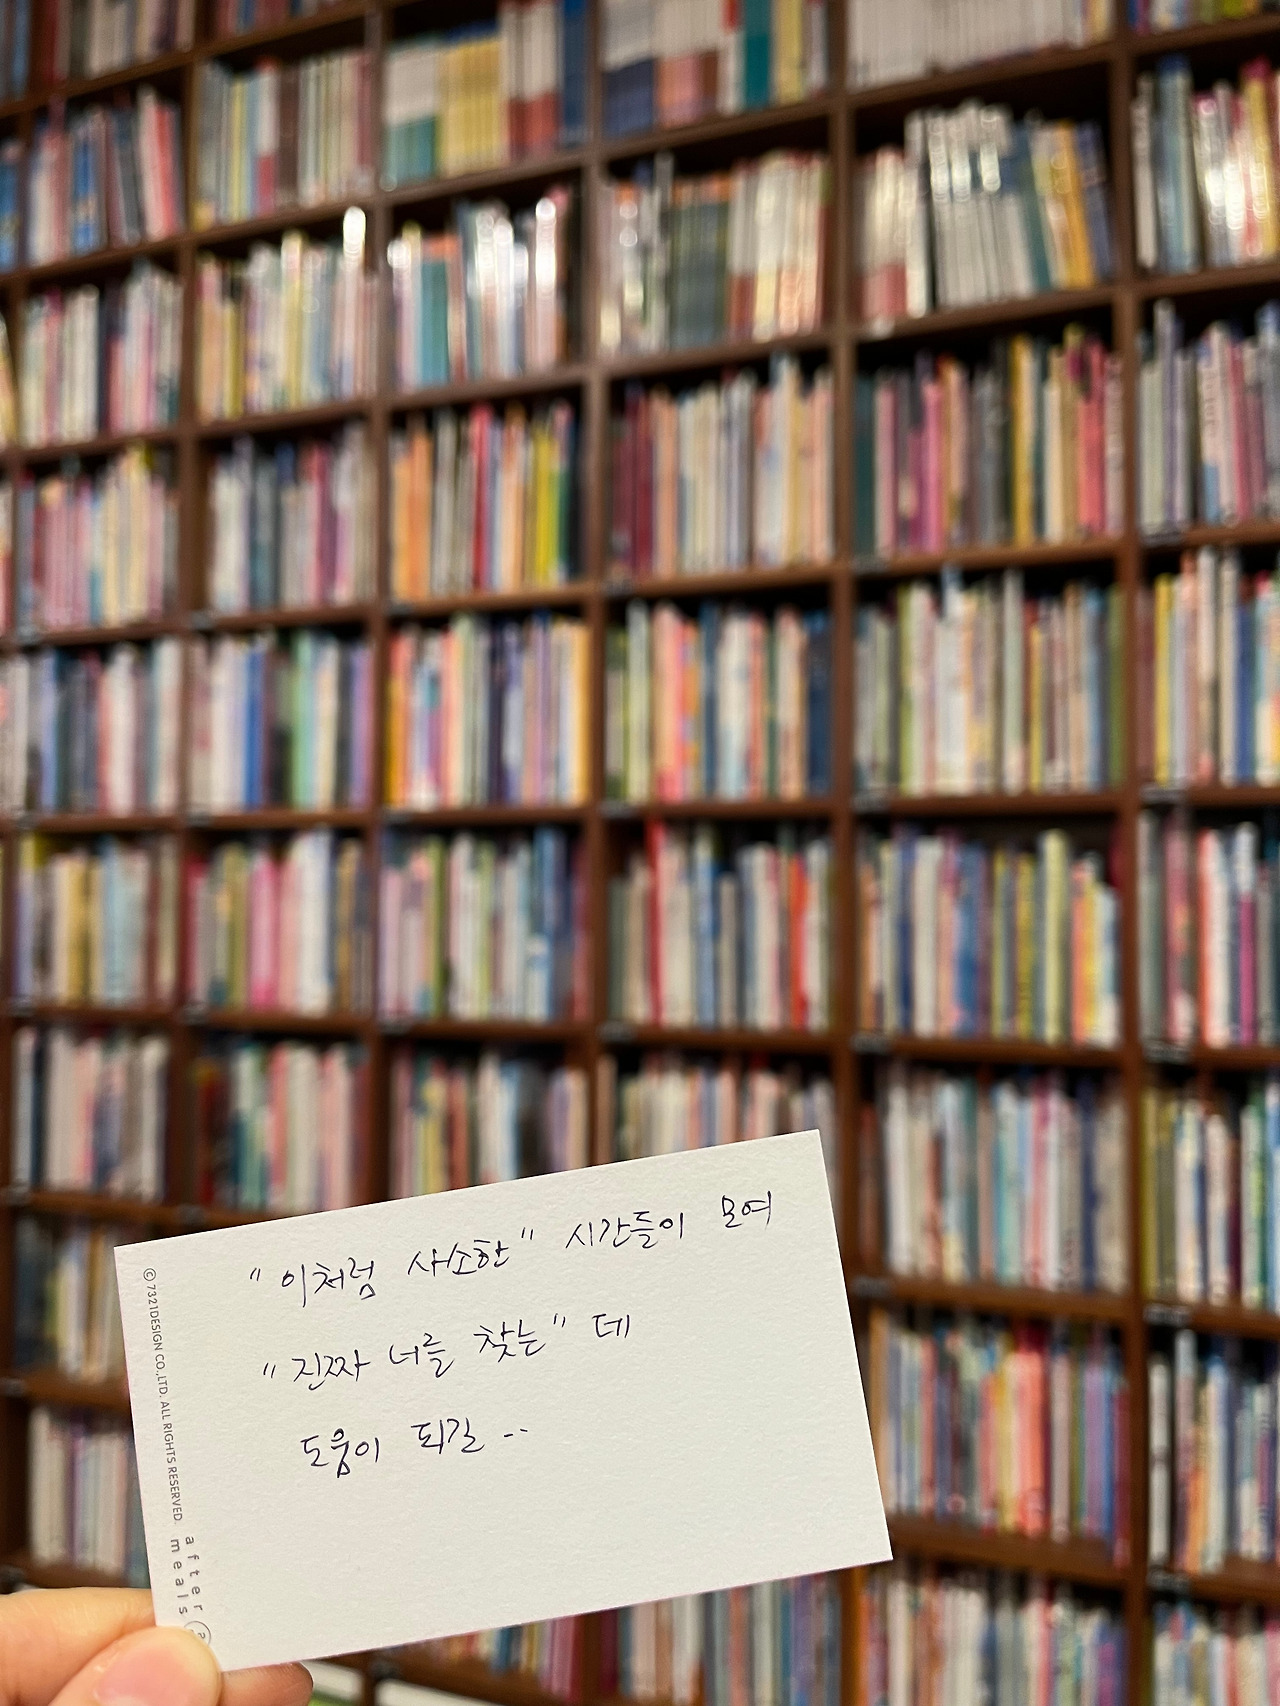 "이처럼 사소한" 시간들이 모여
"진짜 너를 찾는" 데
도움이 되길..
©7321DESIGN CO.,LTD. ALL RIGHTS RESERVED.
after
meals